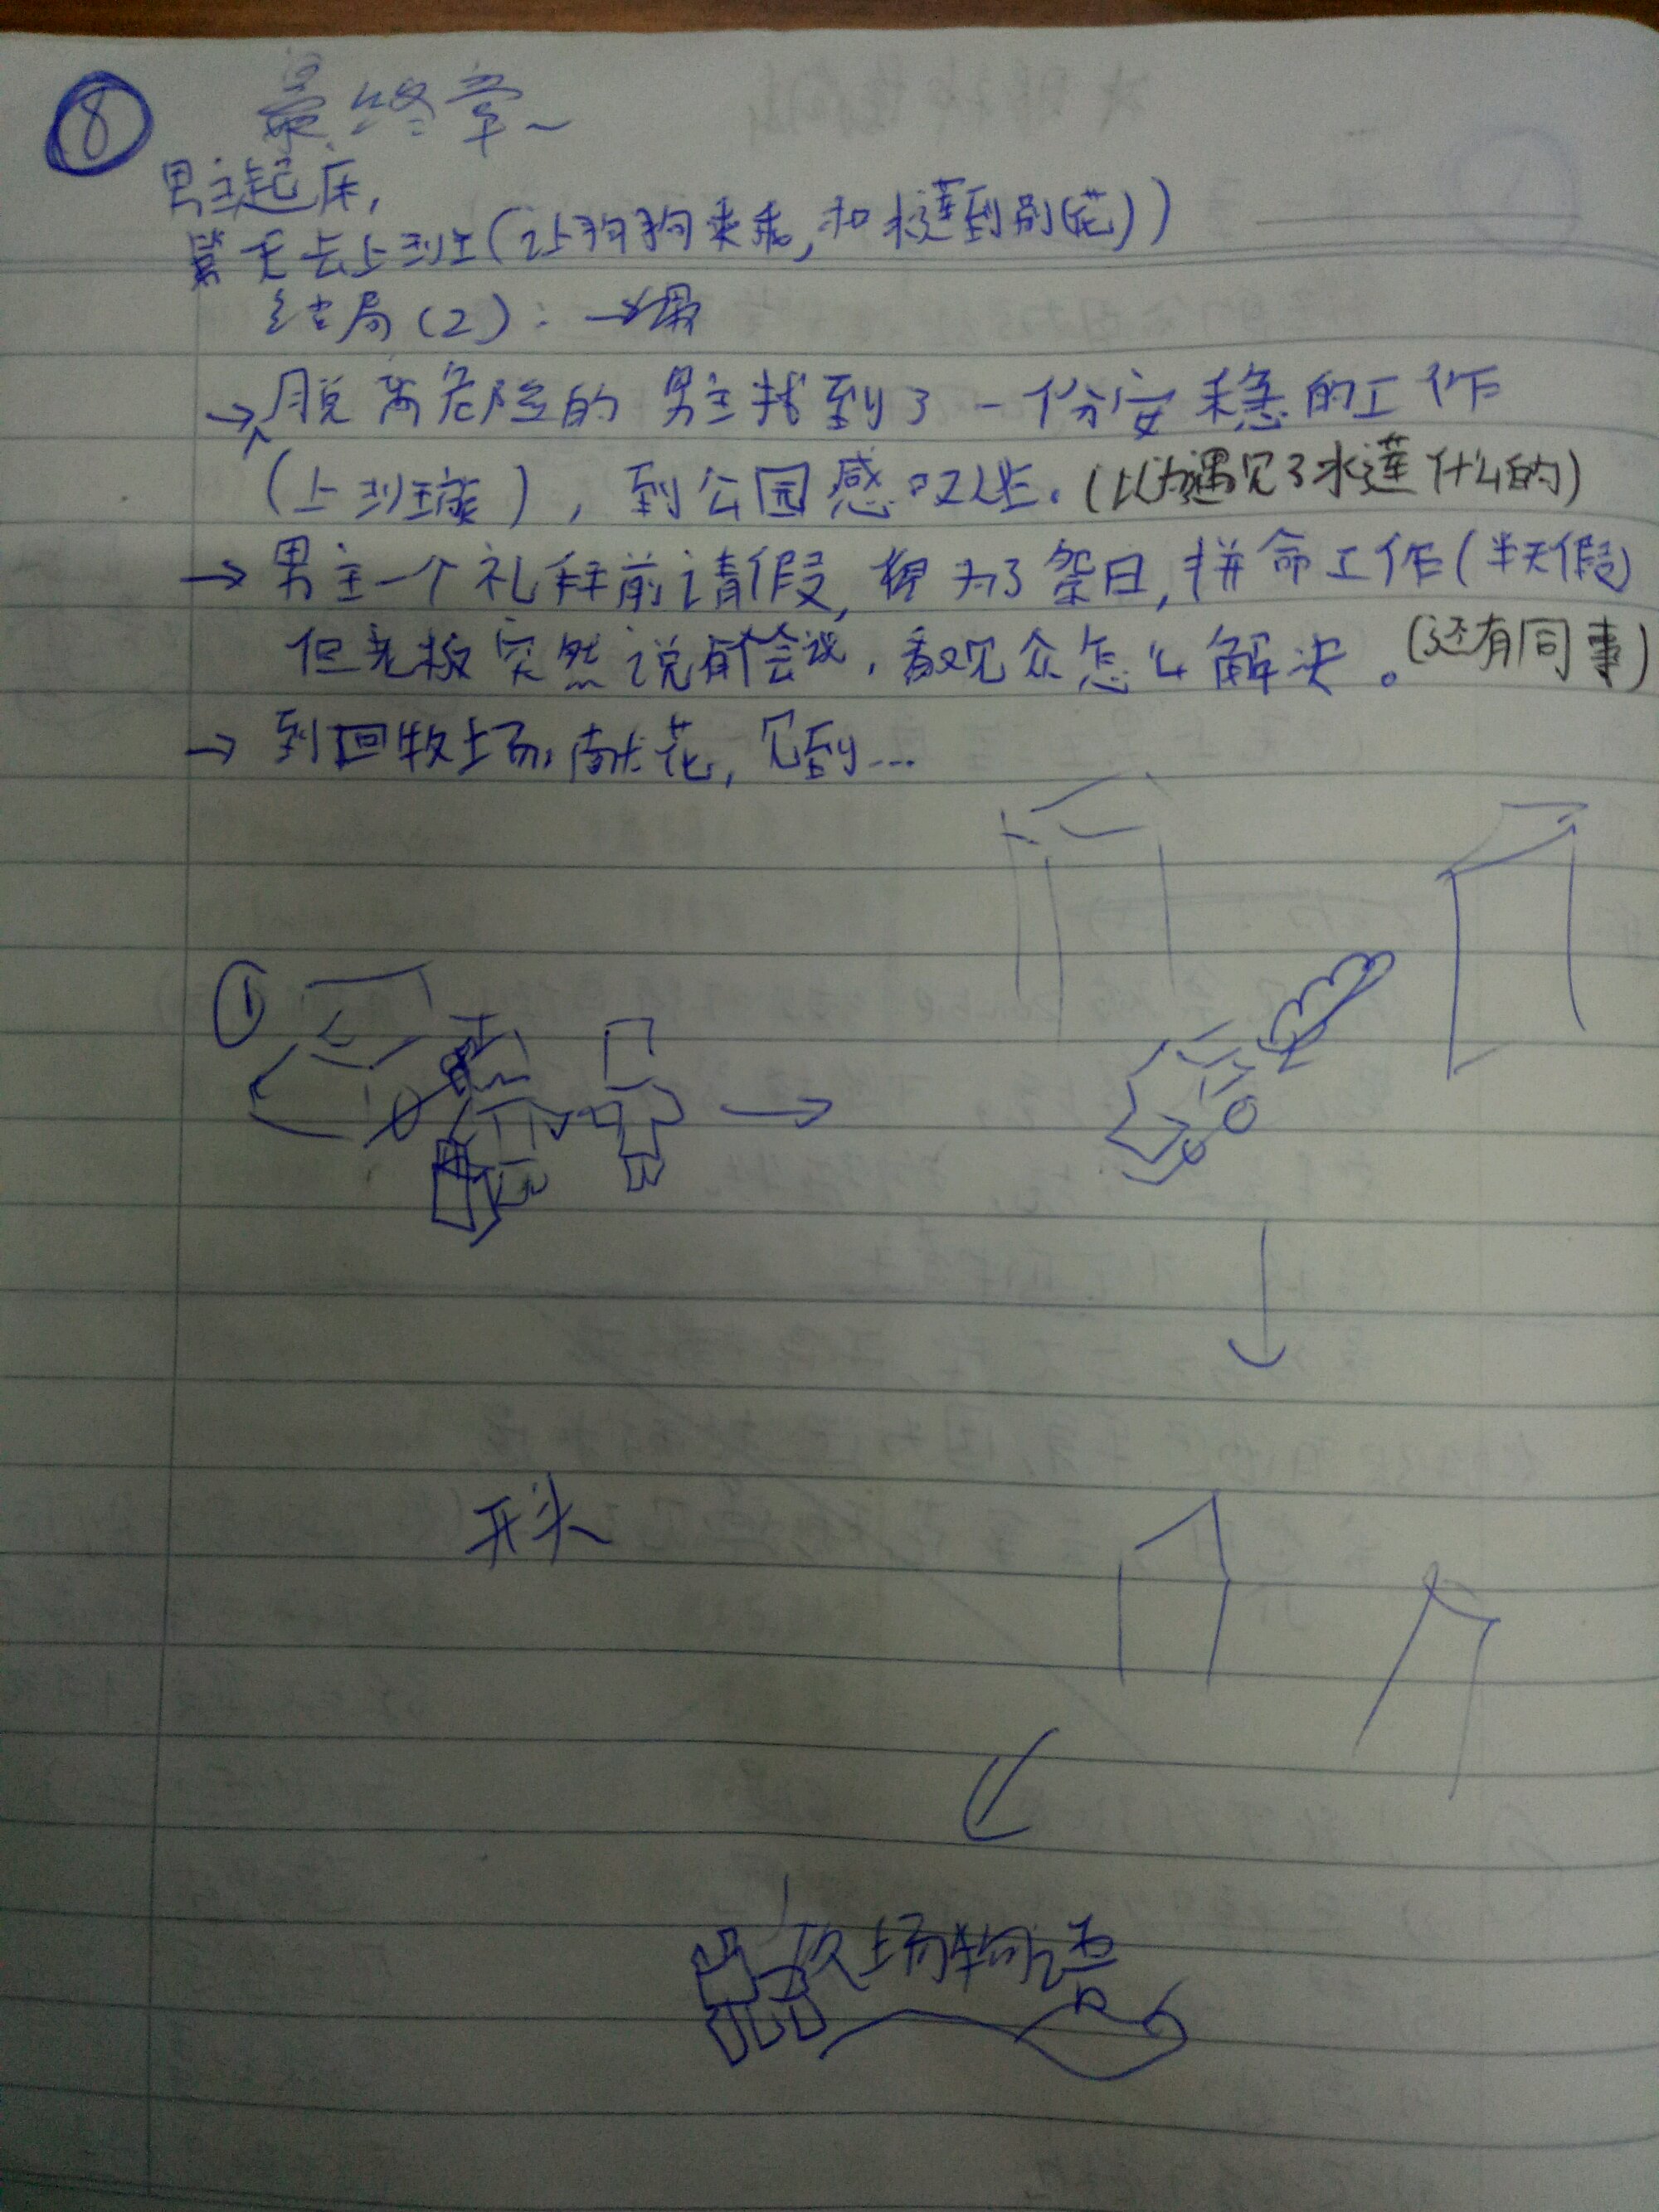 ⑧ 最终章~
男主起床,
无去上班(让狗狗来乖,和水莲到别(花))
结局(2):→
→脱离危险的男主找到了一份安稳的工作
(上班族),到公园感叹人生。(以为遇见了水莲什么的)
→男主一个礼拜前请假,为了祭日,拼命工作(半天假)
但老板突然说有会议,看观众怎么解决。(还有同事)
→到回牧场,献花,见到...
①
开头
牧场物语